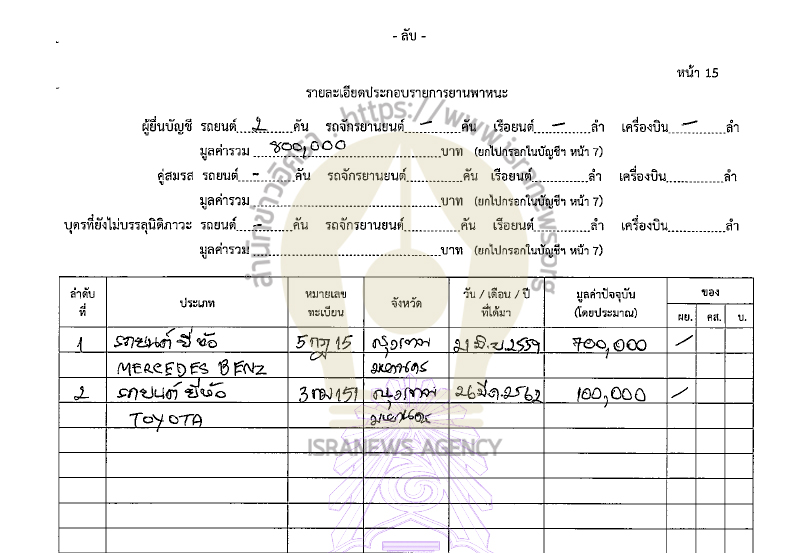 - ลับ -
หน้า 15
รายละเอียดประกอบรายการยานพาหนะ
ผู้ยื่นบัญชี รถยนต์ 2 คัน รถจักรยานยนต์ - คัน เรือยนต์ - ลำ เครื่องบิน - ลำ
มูลค่ารวม 800,000 บาท (ยกไปกรอกในบัญชีฯ หน้า 7)
คู่สมรส รถยนต์ - คัน รถจักรยานยนต์ คัน เรือยนต์ ลำ เครื่องบิน ลำ
มูลค่ารวม บาท (ยกไปกรอกในบัญชีฯ หน้า 7)
บุตรที่ยังไม่บรรลุนิติภาวะ รถยนต์ - คัน รถจักรยานยนต์ คัน เรือยนต์ ลำ เครื่องบิน ลำ
มูลค่ารวม บาท (ยกไปกรอกในบัญชีฯ หน้า 7)
ลำดับที่ ประเภท หมายเลขทะเบียน จังหวัด วัน / เดือน / ปี ที่ได้มา มูลค่าปัจจุบัน (โดยประมาณ) ของ
ผย. คส. บ.
1 รถยนต์ ยี่ห้อ 5กฎ 15 กรุงเทพ 21 มิ.ย. 2559 700,000 /
MERCEDES BENZ มหานคร
2 รถยนต์ ยี่ห้อ 151 กรุงเทพ 26 มี.ค. 2562 100,000 /
TOYOTA มหานคร
สำนักข่าวอิศรา : https://www.isranews.org
ISRANEWS AGENCY